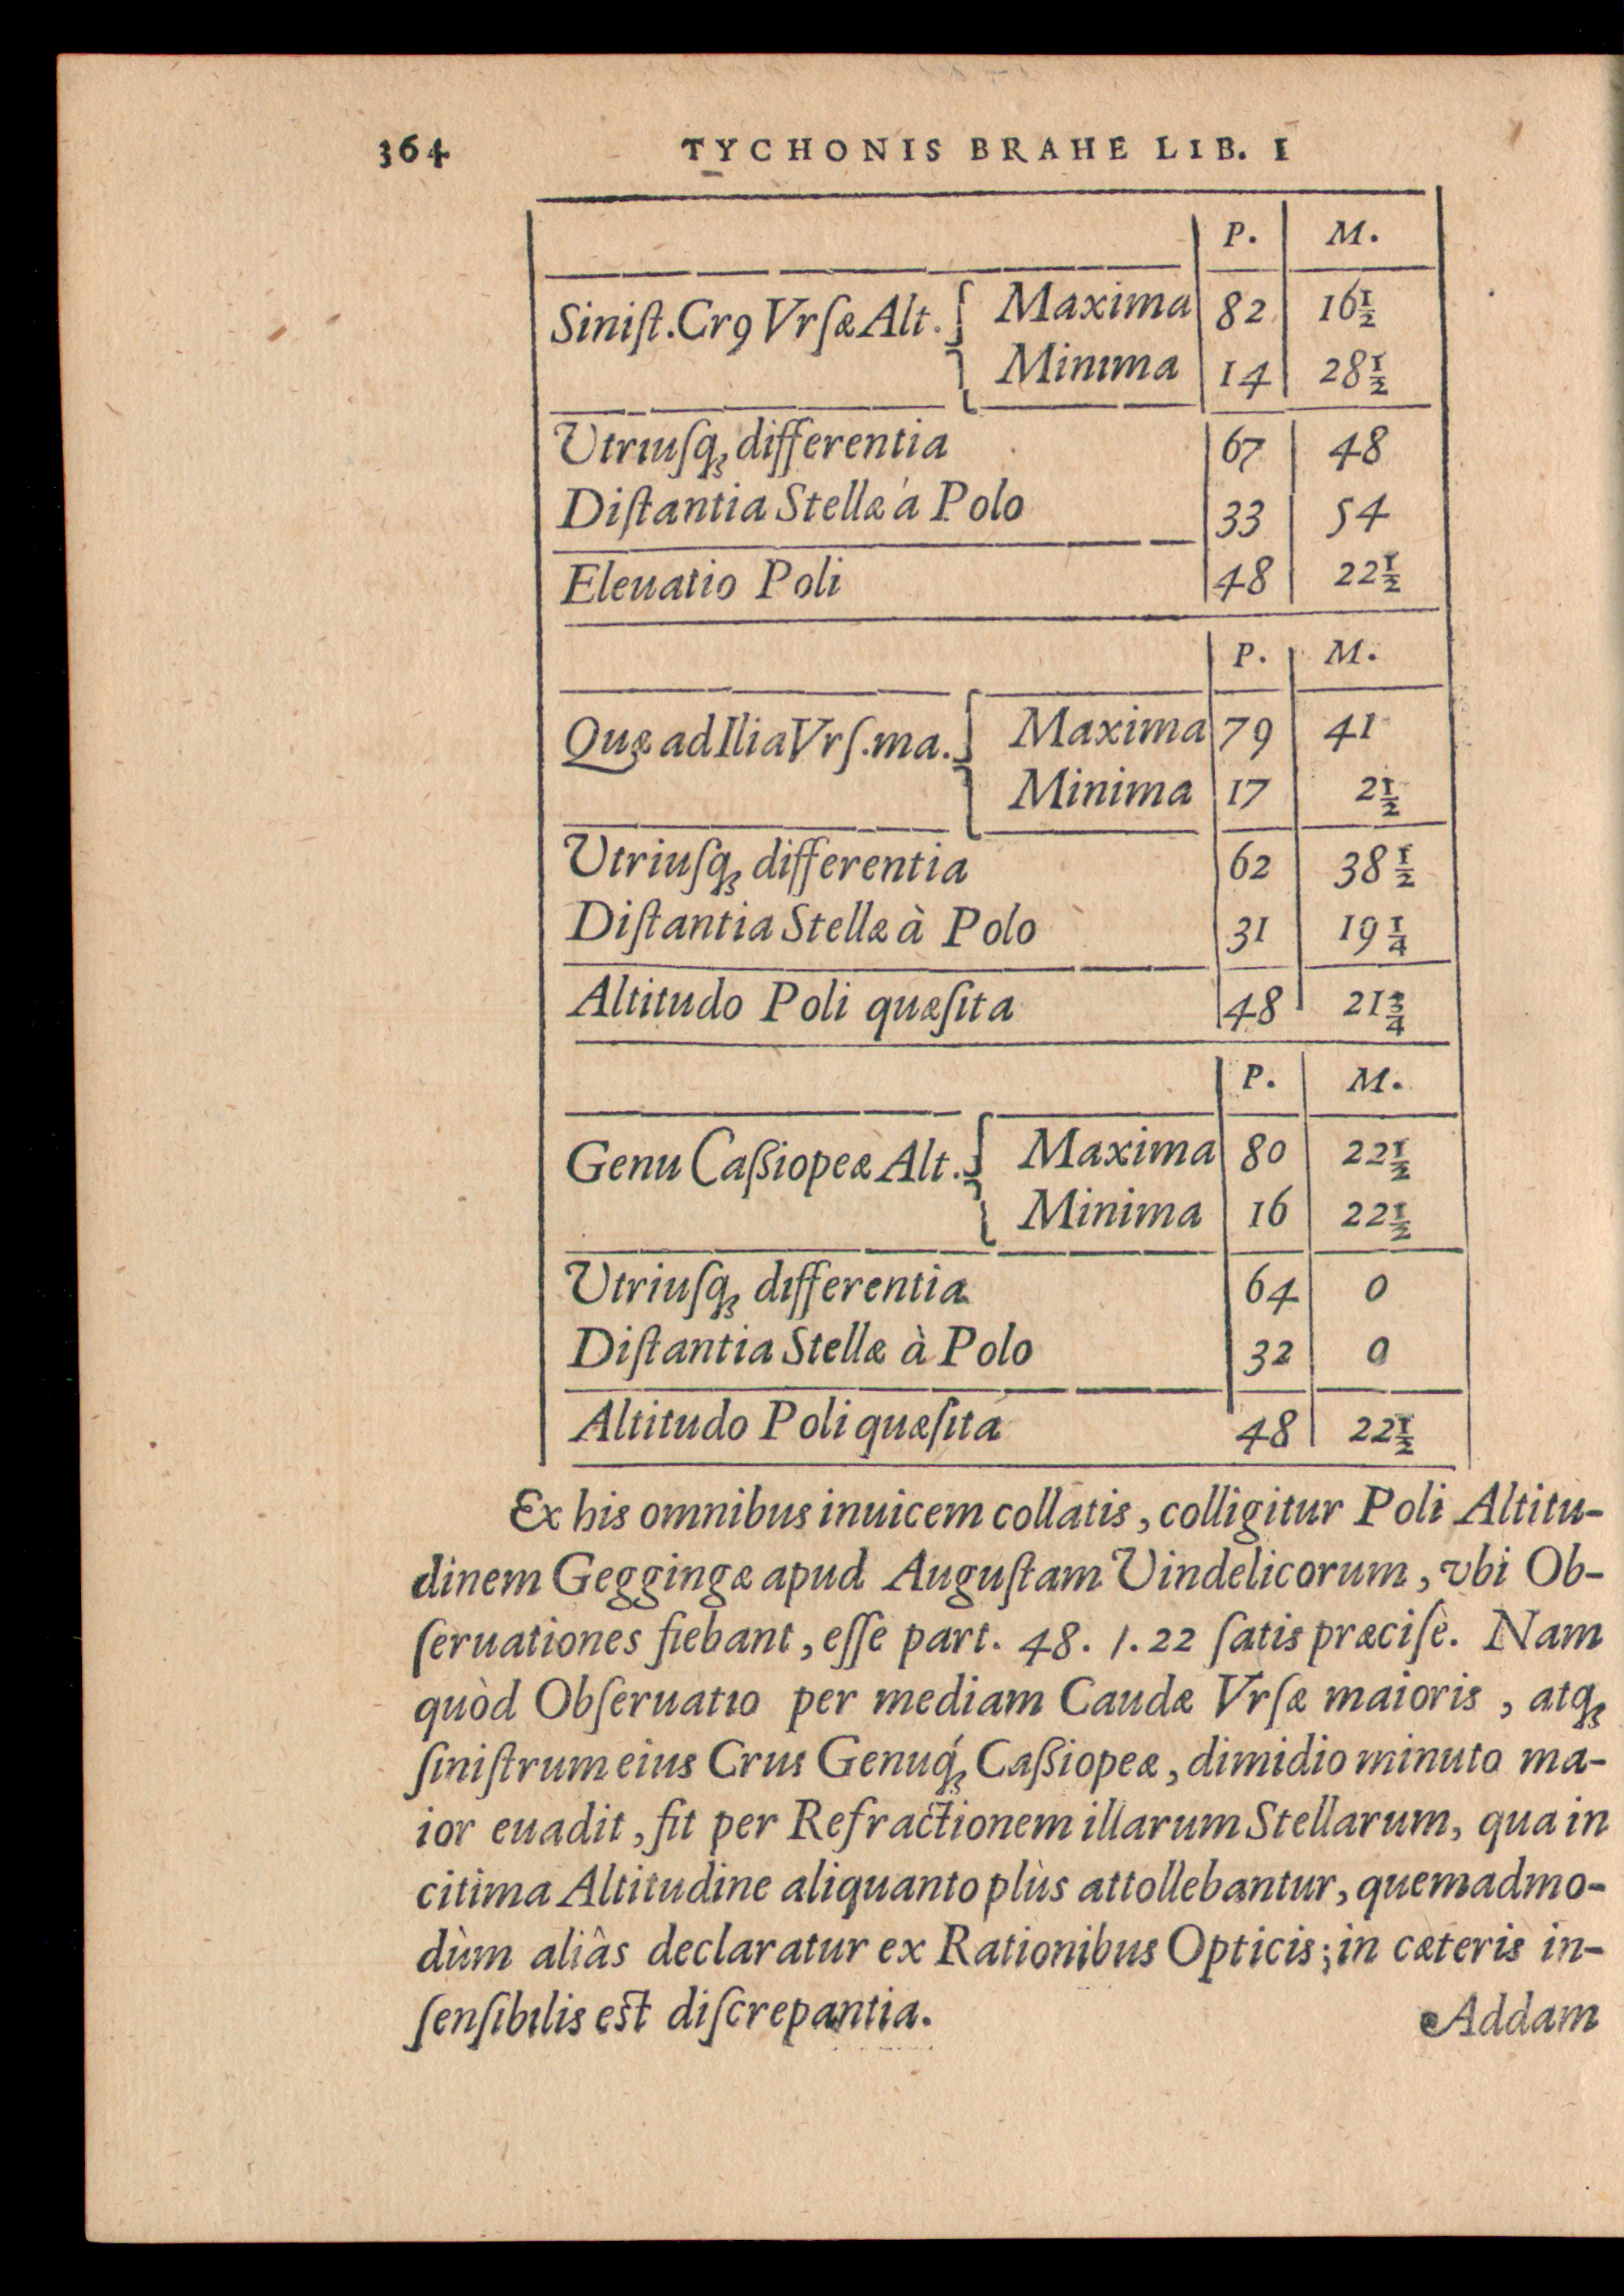 364 TYCHONIS BRAHE LIB. I
P. M.
Siniſt. Cr9 Vrſæ Alt. { Maxima 82 16½
Minima 14 28½
Utriuſq; differentia 67 48
Diſtantia Stellæ à Polo 33 54
Eleuatio Poli 48 22½
P. M.
Quæ ad Ilia Vrſ. ma. { Maxima 79 41
Minima 17 2½
Utriuſq; differentia 62 38½
Diſtantia Stellæ à Polo 31 19¼
Altitudo Poli quæſita 48 21¾
P. M.
Genu Caßiopeæ Alt. { Maxima 80 22½
Minima 16 22½
Utriuſq; differentia 64 0
Diſtantia Stellæ à Polo 32 0
Altitudo Poli quæſita 48 22½
Ex his omnibus inuicem collatis, colligitur Poli Altitu-
dinem Geggingæ apud Auguſtam Vindelicorum, vbi Ob-
ſeruationes fiebant, eſſe part. 48. /. 22 ſatis præciſè. Nam
quòd Obſeruatio per mediam Caudæ Vrſæ maioris, atq;
ſiniſtrum eius Crus Genuq́; Caßiopeæ, dimidio minuto ma-
ior euadit, fit per Refractionem illarum Stellarum, qua in
citima Altitudine aliquanto plùs attollebantur, quemadmo-
dùm aliâs declaratur ex Rationibus Opticis; in cæteris in-
ſenſibilis eſt diſcrepantia.
Addam